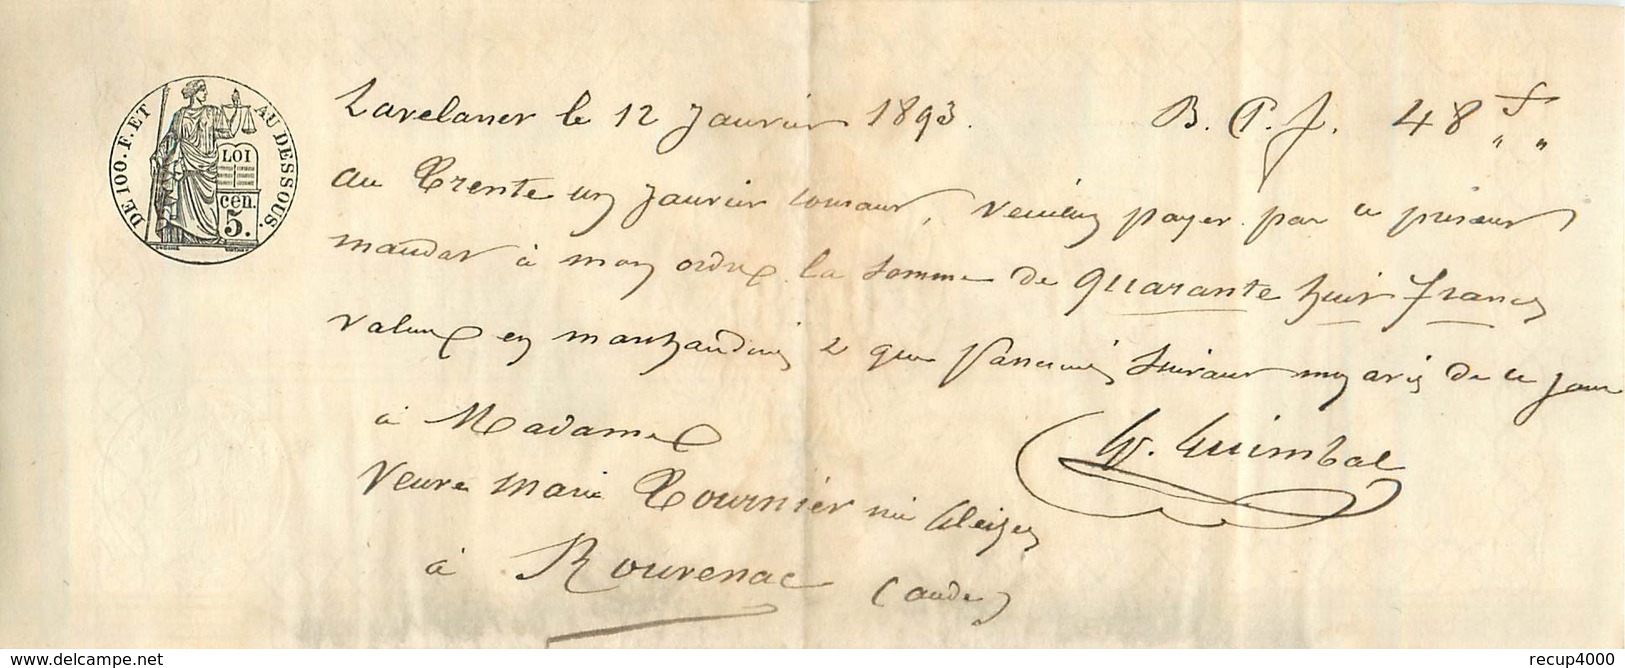 DE 100. F. ET AU DESSOUS.
LOI
cen.
5.
Lavelanet le 12 Janvier 1893. B. P. F. 48 f " "
au Trente un Janvier courant, veuillez payer par ce présent
mandat à mon ordre la somme de Quarante huit francs
valeur en marchandises que passerez suivant mon avis de ce jour
à Madame
Veuve Marie Tournier née Gleizes
à Rouvenac (aude)
G. Guimbal
www.delcampe.net
recup4000